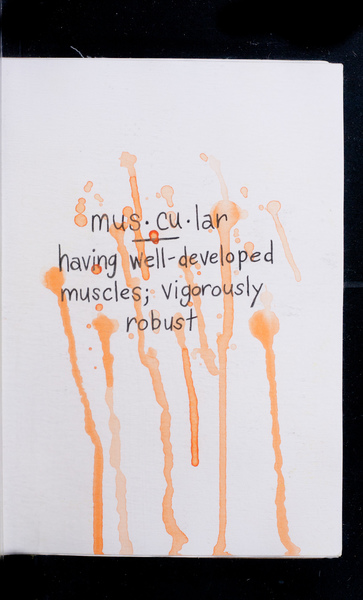 mus·cu·lar
having well-developed
muscles; vigorously
robust